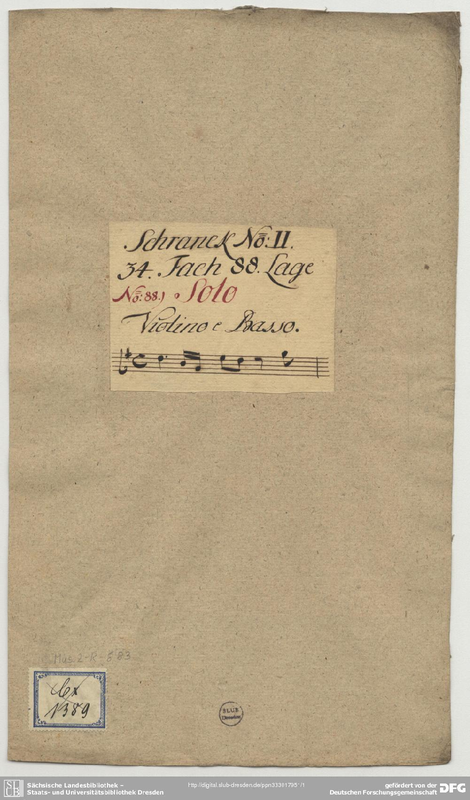 Schranck No: II.
34. Fach 88. Lage
No: 88.) Solo
Violino e Basso.
Mus. 2-R-8 83
Cx
1389
SLUB
Dresden
Sächsische Landesbibliothek –
Staats- und Universitätsbibliothek Dresden
gefördert von der
Deutschen Forschungsgemeinschaft
DFG